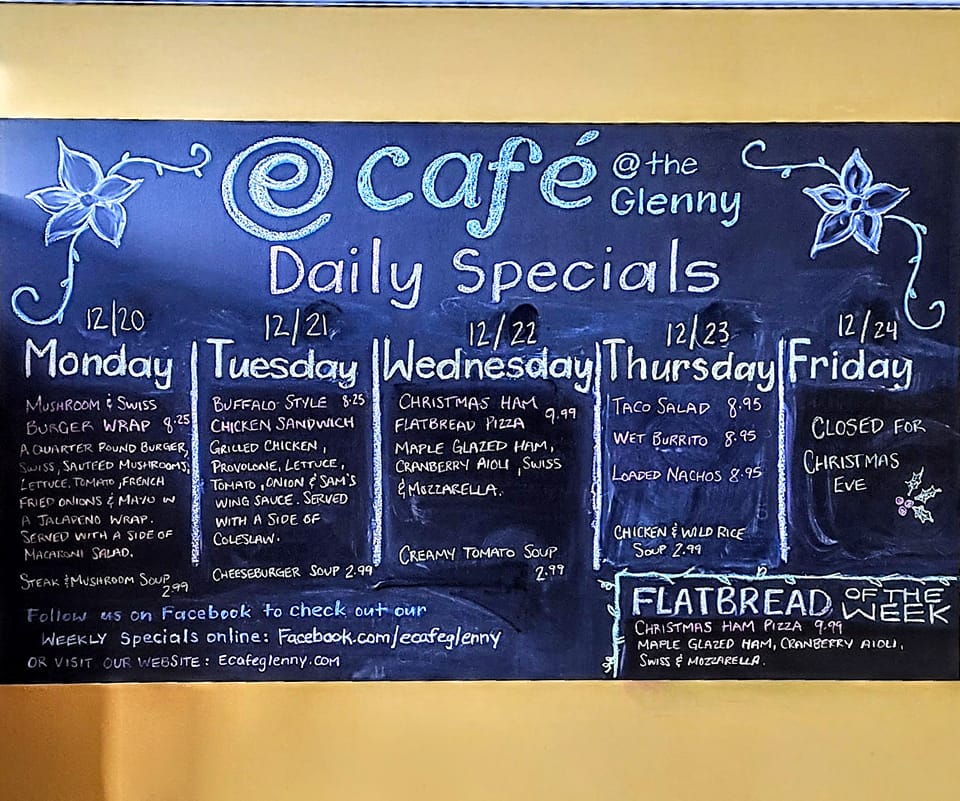 e café @ the
Glenny
Daily Specials
12/20
Monday
MUSHROOM & SWISS
BURGER WRAP 8.25
A QUARTER POUND BURGER,
SWISS, SAUTEED MUSHROOMS,
LETTUCE, TOMATO, FRENCH
FRIED ONIONS & MAYO IN
A JALAPENO WRAP.
SERVED WITH A SIDE OF
MACARONI SALAD.
STEAK & MUSHROOM SOUP
2.99
12/21
Tuesday
BUFFALO STYLE 8.25
CHICKEN SANDWICH
GRILLED CHICKEN,
PROVOLONE, LETTUCE,
TOMATO, ONION & SAM'S
WING SAUCE. SERVED
WITH A SIDE OF
COLESLAW.
CHEESEBURGER SOUP 2.99
12/22
Wednesday
CHRISTMAS HAM 9.99
FLATBREAD PIZZA
MAPLE GLAZED HAM,
CRANBERRY AIOLI, SWISS
& MOZZARELLA.
CREAMY TOMATO SOUP
2.99
12/23
Thursday
TACO SALAD 8.95
WET BURRITO 8.95
LOADED NACHOS 8.95
CHICKEN & WILD RICE
SOUP 2.99
12/24
Friday
CLOSED FOR
CHRISTMAS
EVE
Follow us on Facebook to check out our
WEEKLY Specials online: Facebook.com/ecafeglenny
OR VISIT OUR WEBSITE: Ecafeglenny.com
FLATBREAD OF THE
WEEK
CHRISTMAS HAM PIZZA 9.99
MAPLE GLAZED HAM, CRANBERRY AIOLI,
SWISS & MOZZARELLA.